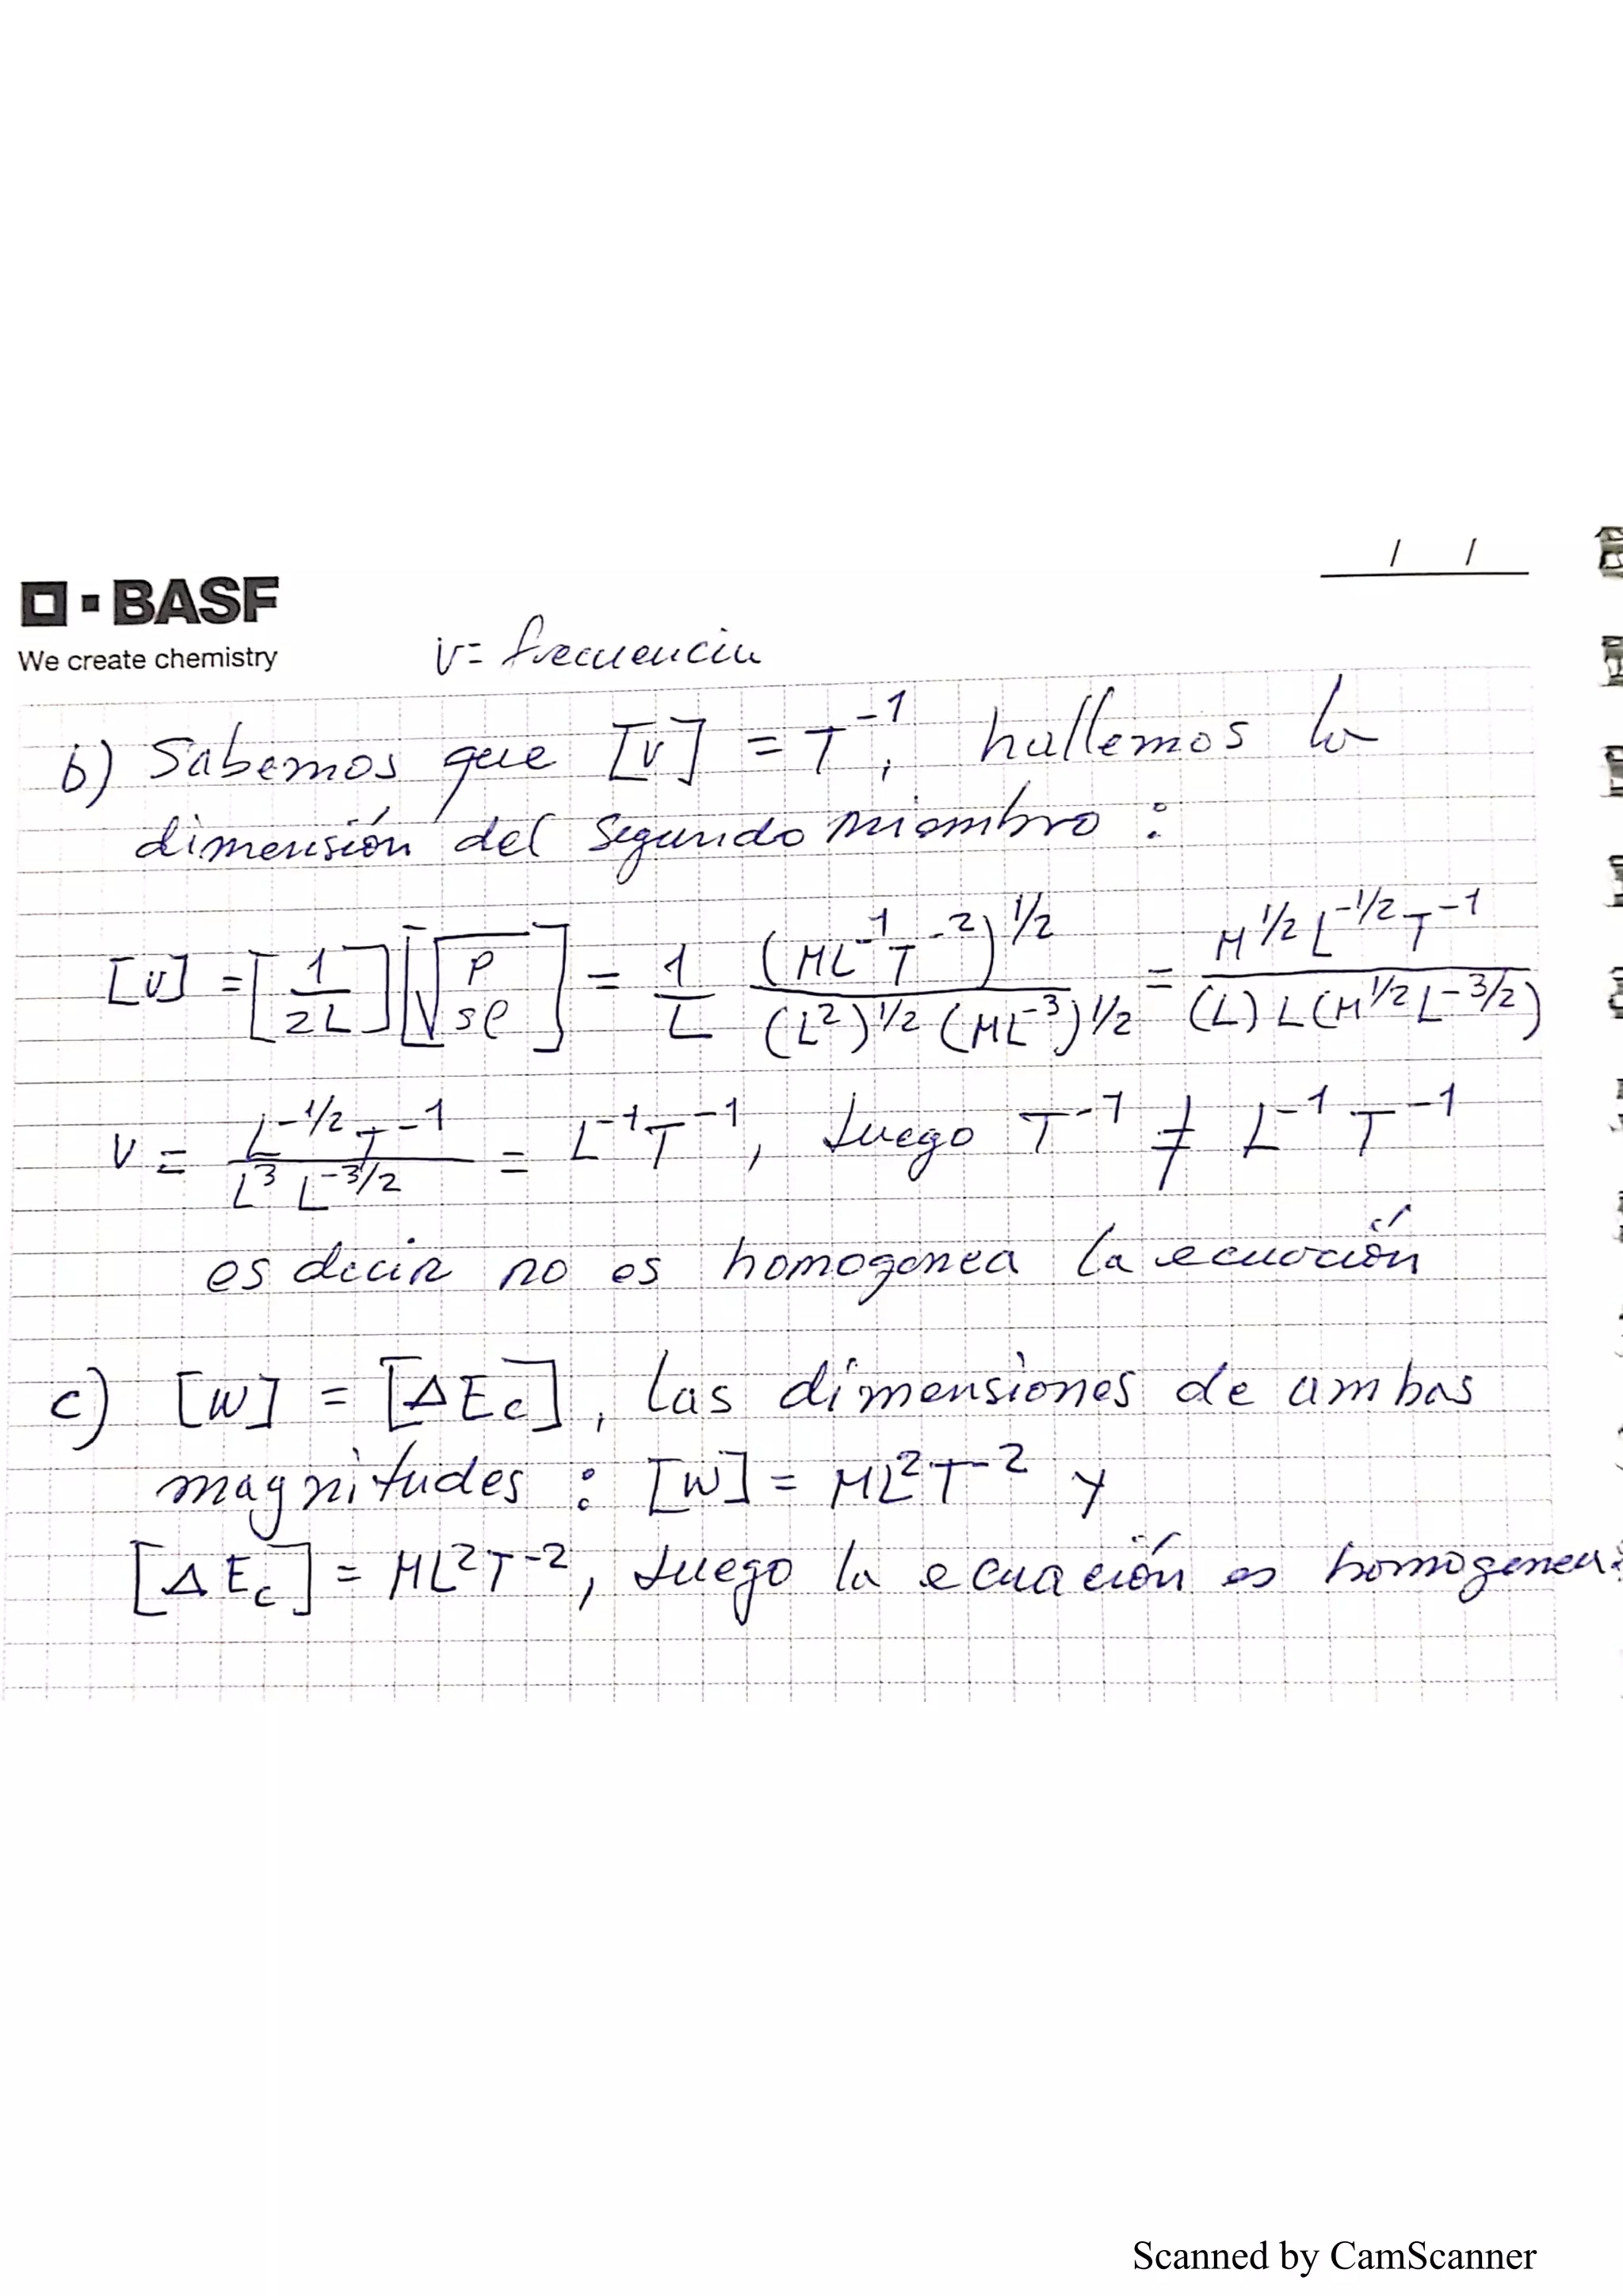 / /
BASF
We create chemistry
ν = frecuencia
b) Sabemos que [ν] = T⁻¹, hallemos la
dimensión del segundo miembro :
[ν] = [1/2L] [√(P/sρ)] = 1/L (ML⁻¹T⁻²)^1/2 / (L²)^1/2 (ML⁻³)^1/2 = M^1/2 L^-1/2 T⁻¹ / (L) L (M^1/2 L^-3/2)
ν = L^-1/2 T⁻¹ / L³ L^-3/2 = L⁻¹T⁻¹, luego T⁻¹ ≠ L⁻¹ T⁻¹
es decir no es homogenea la ecuación
c) [W] = [ΔEc], las dimensiones de ambas
magnitudes : [W] = ML²T⁻² y
[ΔEc] = ML²T⁻², luego la ecuación es homogenea.
Scanned by CamScanner